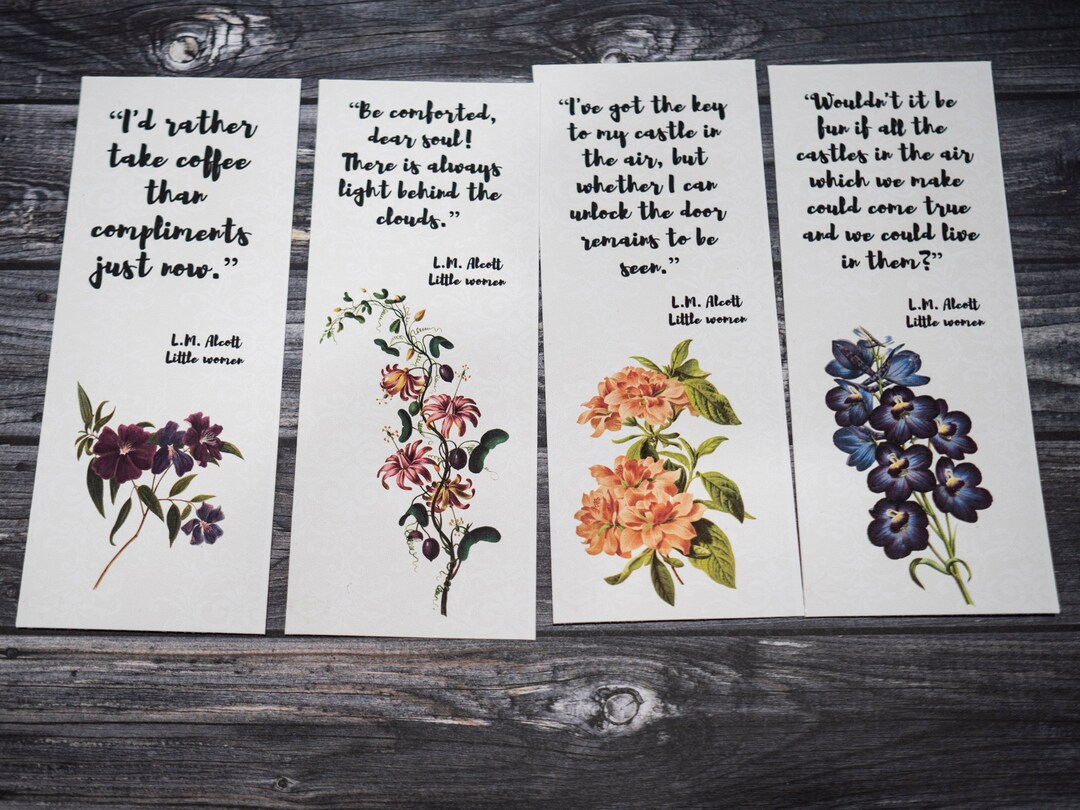 “I’d rather
take coffee
than
compliments
just now.”
L.M. Alcott
Little women
“Be comforted,
dear soul!
There is always
light behind the
clouds.”
L.M. Alcott
Little women
“I’ve got the key
to my castle in
the air, but
whether I can
unlock the door
remains to be
seen.”
L.M. Alcott
Little women
“Wouldn’t it be
fun if all the
castles in the air
which we make
could come true
and we could live
in them?”
L.M. Alcott
Little women